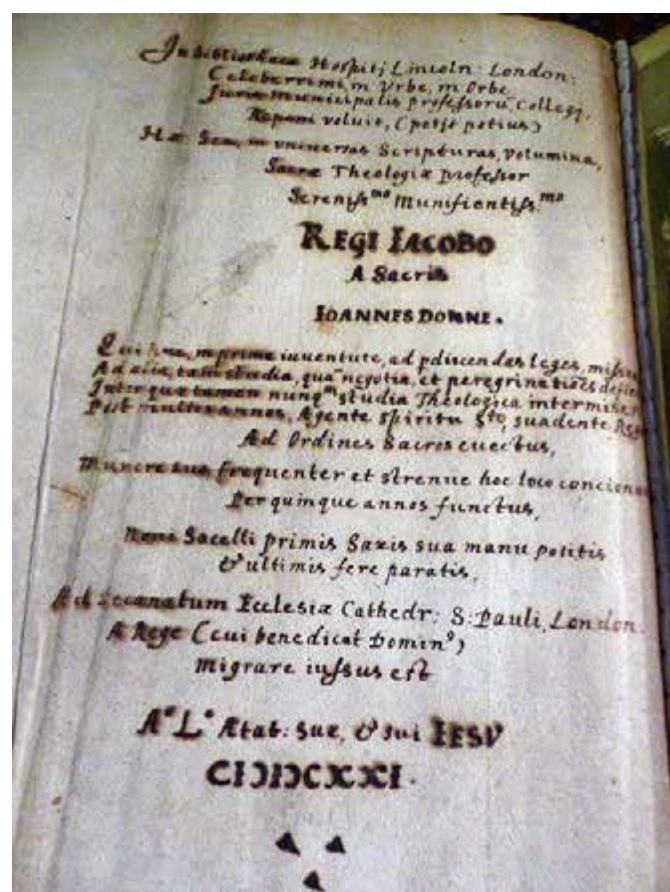 In bibliotheca Hospitij Lincoln: London:
Celeberrimi, in Vrbe, in Orbe,
Juris Municipalis Professorū Collegij,
Reponi voluit, (petijt potius)
Hæc Sex, in vniuersas Scripturas, volumina,
Sacræ Theologiæ Professor
Serenissᵐᵒ Munificentissᵐᵒ
REGI IACOBO
A Sacris
IOANNES DONNE.
Qui huc, in prima iuuentute, ad pdiscendas leges, missus
Ad alia, tam studia, quā negotia, et peregrinatiōes
Inter quæ tamen nunqᵐ studia Theologica intermiserat
Post multos annos, Agente Spiritu Sᵗᵒ, suadente Rege
Ad Ordines Sacros euectus,
Munere suo frequenter et strenue hoc loco
Per quinque annos functus,
Noui Sacelli primis Saxis sua manu positis
& ultimis fere paratis,
Ad Decanatum Ecclesiæ Cathedr: S: Pauli, London:
A Rege (cui benedicat Dominꝰ)
Migrare iussus est
Aº Lº Ætat: suæ, & sui IESV
CIↃIↃCXXI.